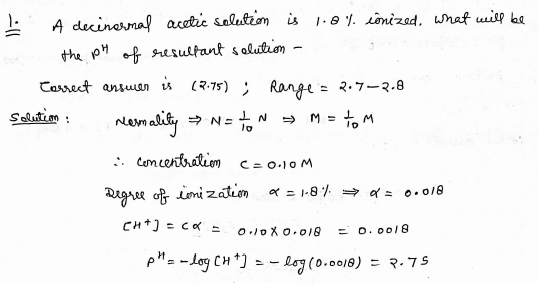 1. A decinormal acetic solution is 1.8 %. ionized. What will be
the pH of resultant solution -
Correct answer is (2.75) ; Range = 2.7-2.8
Solution : Normality ⇒ N = 1/10 N ⇒ M = 1/10 M
∴ Concentration C = 0.10 M
Degree of ionization α = 1.8 %. ⇒ α = 0.018
[H+] = cα = 0.10 x 0.018 = 0.0018
pH = -log [H+] = - log (0.0018) = 2.75